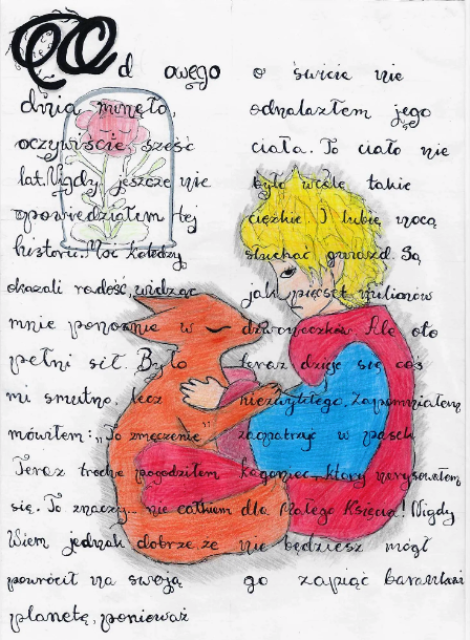 Od owego
dnia minęło,
oczywiście sześć
lat. Nigdy jeszcze nie
opowiedziałem tej
historii. Moi koledzy
okazali radość, widząc
mnie ponownie w
pełni sił. Było
mi smutno, lecz
mówiłem: „To zmęczenie”
Teraz trochę pogodziłem
się. To znaczy... nie całkiem
Wiem jednak dobrze, że
powrócił na swoją
planetę, ponieważ
o świcie nie
odnalazłem jego
ciała. To ciało nie
było wcale takie
ciężkie. I lubię nocą
słuchać gwiazd. Są
jak pięćset milionów
dzwoneczków. Ale oto
teraz dzieje się coś
niezwykłego. Zapomniałem
zaopatrzyć w pasek
kaganiec, który narysowałem
dla Małego Księcia! Nigdy
nie będziesz mógł
go zapiąć